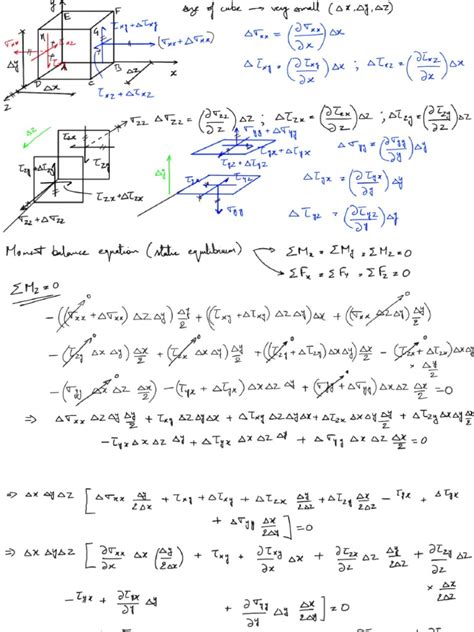 size of cube → very small (Δx, Δy, Δz)
y
E
F
G
A
B
C
D
x
z
Δx
Δy
Δz
σxx
τxz
τxy + Δτxy
(σxx + Δσxx)
τxz + Δτxz
Δσxx = (∂σxx/∂x) Δx
Δτxy = (∂τxy/∂x) Δx ; Δτxz = (∂τxz/∂x) Δx
Δz
σzz
τzx
τzy
τzx + Δτzx
σzz + Δσzz
Δσzz = (∂σzz/∂z) Δz ; Δτzx = (∂τzx/∂z) Δz ; Δτzy = (∂τzy/∂z) Δz
σyy + Δσyy
τyx + Δτyx
τyz + Δτyz
Δy
τyz
σyy
Δσyy = (∂σyy/∂y) Δy
Δτyx = (∂τyx/∂y) Δy
Δτyz = (∂τyz/∂y) Δy
Moment balance equation (static equilibrium) → ΣMx = ΣMy = ΣMz = 0
→ ΣFx = ΣFy = ΣFz = 0
ΣMz = 0
-((σxx + Δσxx) Δz Δy) Δy/2 + ((τxy + Δτxy) Δz Δy) Δx + (σxx Δz Δy) Δy/2
-(τzy Δx Δy) Δx/2 + ((τzy + Δτzy) Δx Δy) Δx/2 - (τzx + Δτzx) Δx Δy × Δy/2
-(σyy Δx Δz Δx/2) - (τyx + Δτyx) Δx Δz Δy + (σyy + Δσyy) Δx Δz Δx/2 = 0
⇒ Δσxx Δz Δy Δy/2 + τxy Δz Δy Δx + Δτxy Δz Δy Δx + Δτzx Δx Δy Δy/2 + Δτzy Δx Δy Δx/2
- τyx Δx Δz Δy + Δτyx Δx Δz Δy + Δσyy Δx Δz Δx/2 = 0
⇒ Δx Δy Δz [ Δσxx Δy/2Δx + τxy + Δτxy + Δτzx Δy/2Δz + Δτzy Δx/2Δz - τyx + Δτyx
+ Δσyy Δx/2Δy ] = 0
⇒ Δx Δy Δz [ ∂σxx/∂x Δx (Δy/2Δx) + τxy + ∂τxy/∂x Δx + ∂τzx/∂z Δz Δy/2Δz + ∂τzy/∂z Δz
× Δx/2Δz
- τyx + ∂τyx/∂y Δy + ∂σyy/∂y Δy Δx/2Δy ] = 0